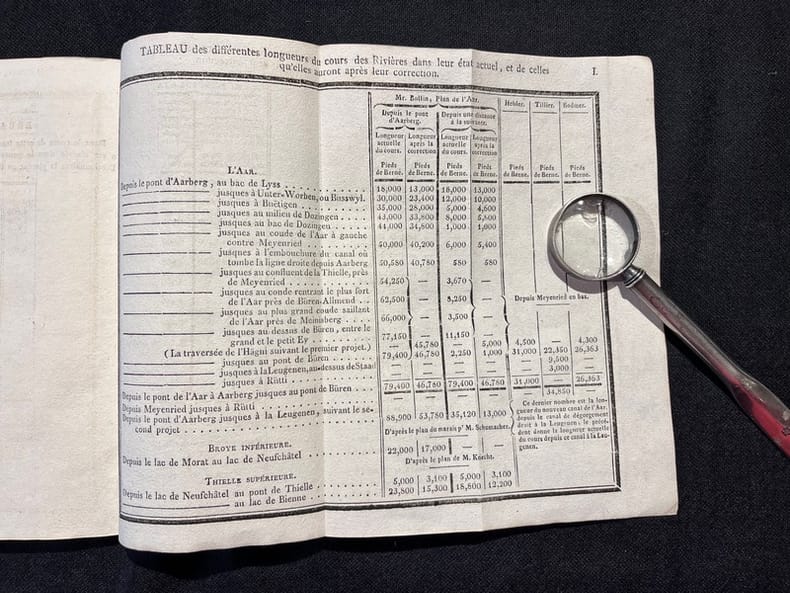 TABLEAU des différentes longueurs du cours des Rivières dans leur état actuel, et de celles
qu'elles auront après leur correction.
I.
Mr. Bollin, Plan de l'Aar. Hebler. Tillier. Bodmer.
Depuis le pont d'Aarberg. Depuis une distance à la suivante.
Longueur actuelle du cours. Longueur après la correction Longueur actuelle du cours. Longueur après la correction
Pieds de Berne. Pieds de Berne. Pieds de Berne. Pieds de Berne. Pieds de Berne. Pieds de Berne. Pieds de Berne.
L'AAR.
Depuis le pont d'Aarberg, au bac de Lyss 18,000 13,000 18,000 13,000
jusques à Unter-Worben, ou Bisswyl. 30,000 23,400 12,000 10,000
jusques à Buëtigen 35,000 28,000 5,000 4,600
jusques au milieu de Dozingen 43,000 33,800 8,000 5,800
jusques au bac de Dozingen 44,000 34,800 1,000 1,000
jusques au coude de l'Aar à gauche
contre Meyenried 50,000 40,200 6,000 5,400
jusques à l'embouchure du canal où
tombe la ligne droite depuis Aarberg 50,580 40,780 580 580
jusques au confluent de la Thielle, près
de Meyenried 54,250 — 3,670 —
jusques au conde rentrant le plus fort
de l'Aar près de Büren-Allmend 62,500 — 8,250 — Depuis Meyenried en bas.
jusques au plus grand coude saillant
de l'Aar près de Meinisberg 66,000 — 3,500 —
jusques au dessus de Büren, entre le
grand et le petit Ey 77,150 — 11,150 —
(La traversée de l'Hägni suivant le premier projet.) — 45,780 — 5,000 4,500 — 4,300
jusques au pont de Büren 79,400 46,780 2,250 1,000 31,000 22,350 26,363
jusques à la Leugenen, au dessus de Staad — — — — — 9,500 —
jusques à Rütti — — — — — 3,000 —
Depuis le pont de l'Aar à Aarberg jusques au pont de Büren 79,400 46,780 79,400 46,780 31,000 — 26,363
Depuis Meyenried jusques à Rütti — — — — — 34,850 —
Depuis le pont d'Aarberg jusques à la Leugenen, suivant le se-
cond projet 88,900 53,780 35,120 13,000
Ce dernier nombre est la lon-
gueur du nouveau canal de l'Aar,
depuis le canal de dégorgement
droit à la Leugnen, le précé-
dent donne la longueur actuelle
du cours depuis ce canal à la Leu-
genen.
D'après le plan du marais pr M. Schumacher.
BROYE INFÉRIEURE.
Depuis le lac de Morat au lac de Neufchâtel 22,000 17,000 — —
D'après le plan de M. Knecht.
THIELLE SUPÉRIEURE.
Depuis le lac de Neufchâtel au pont de Thielle 5,000 3,100 5,000 3,100
au lac de Bienne 23,800 15,300 18,800 12,200